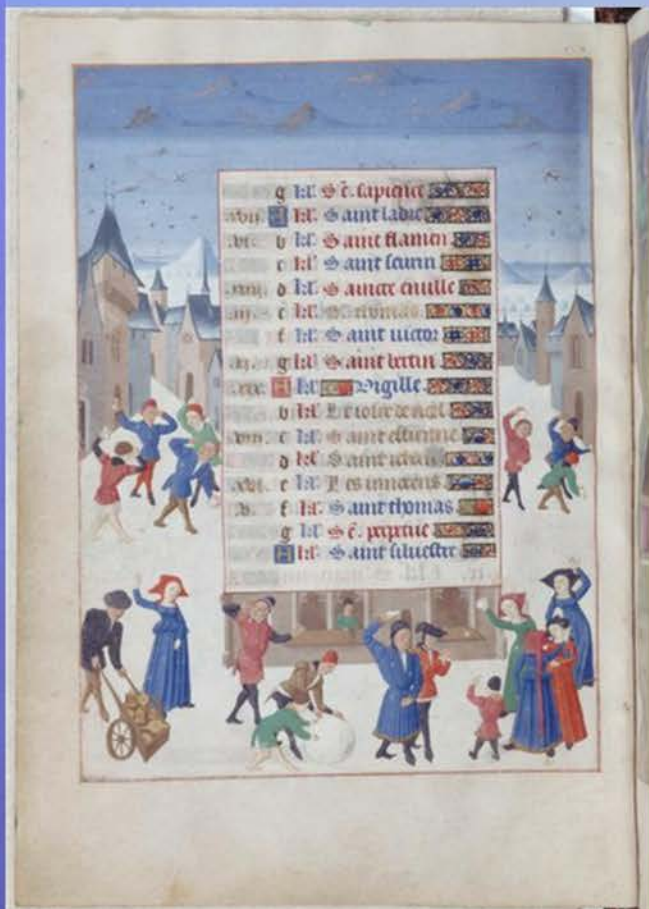 g kl' S ẽ. sapience
xvii A kl' Saint ladre
vi b kl' Saint flamen
c kl' Saint seurin
d kl' Saincte eusille
e kl' S. thomas
f kl' Saint uictor
g kl' Saint bertin
A kl' Vigille
b kl' Le iour de noel
viii c kl' Saint estienne
d kl' Saint iehan
xvi e kl' Les innocens
v f kl' Saint thomas
g kl' S ẽ. perpetue
A kl' Saint siluestre